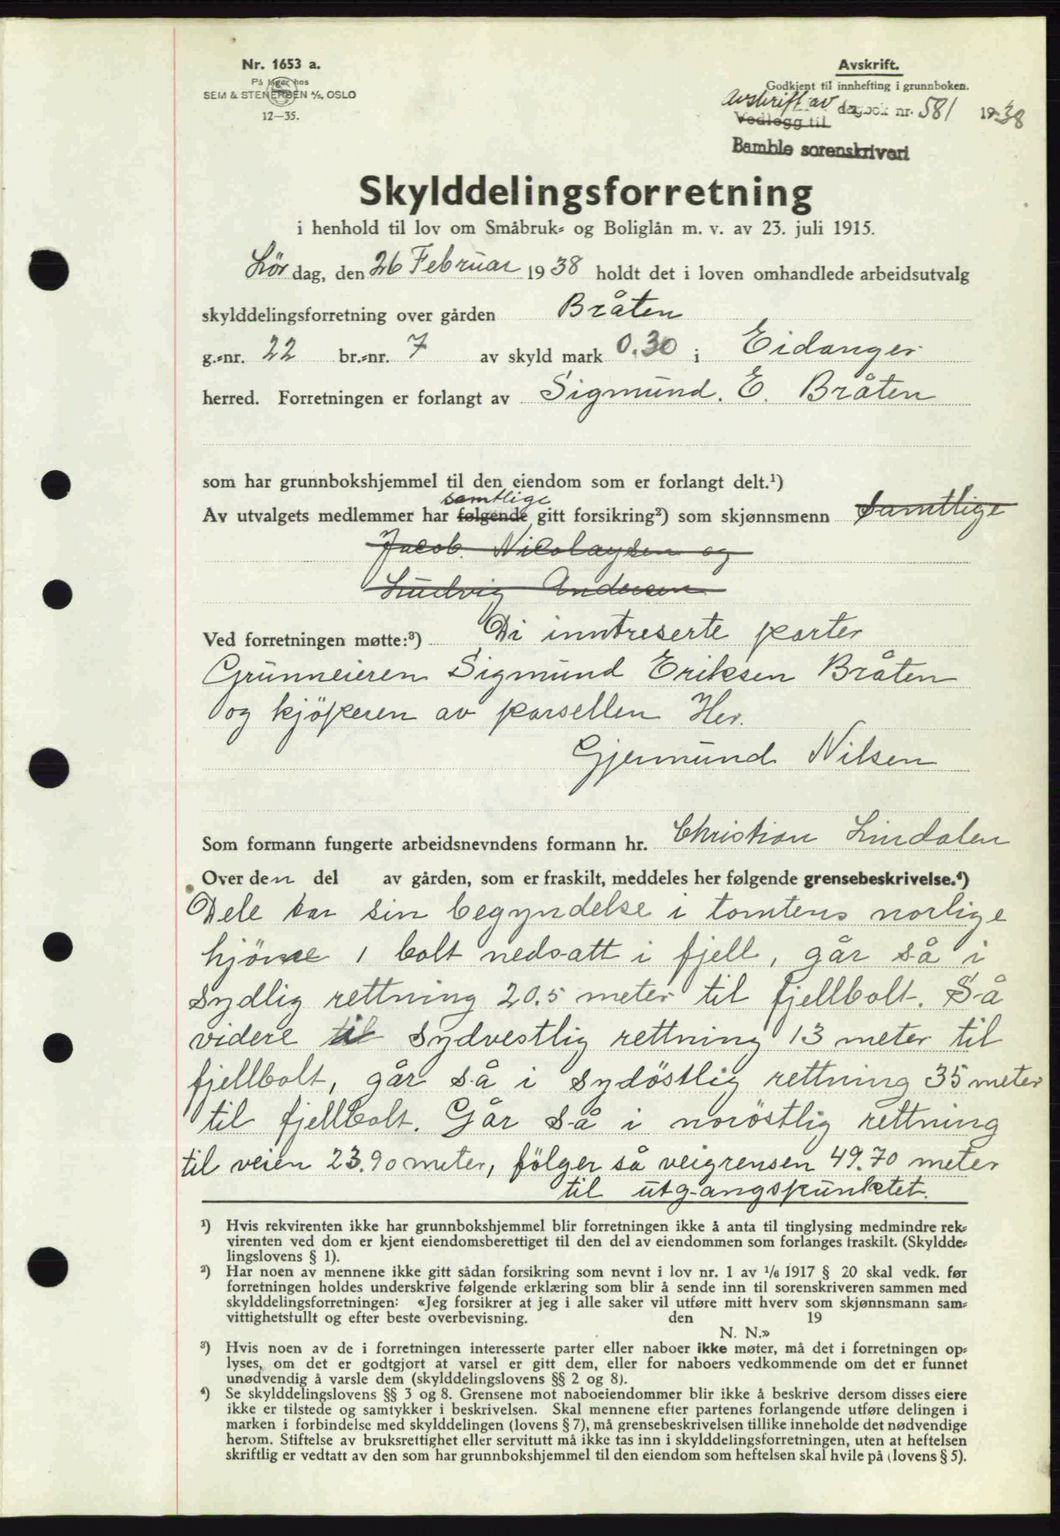 Nr. 1653 a.
På lager hos
SEM & STENERSEN A/S, OSLO
12—35.
Avskrift.
Godkjent til innhefting i grunnboken.
Avskrift av
Vedlegg til dagbok nr. 581 1938
Bamble sorenskriveri
Skylddelingsforretning
i henhold til lov om Småbruk- og Boliglån m. v. av 23. juli 1915.
Lør dag, den 26 Februar 1938 holdt det i loven omhandlede arbeidsutvalg
skylddelingsforretning over gården Bråten
g.-nr. 22 br.-nr. 7 av skyld mark 0.30 i Eidanger
herred. Forretningen er forlangt av Sigmund. E. Bråten
som har grunnbokshjemmel til den eiendom som er forlangt delt.¹)
samtlige
Av utvalgets medlemmer har følgende gitt forsikring²) som skjønnsmenn Samtlige
Jacob. Nicolaysen og
Ludvig Andersen
Ved forretningen møtte:³) Di inntreserte parter
Grunneieren Sigmund Eriksen Bråten
og kjöperen av parsellen Her.
Gjermund Nilsen
Som formann fungerte arbeidsnevndens formann hr. Christian Lindalen
Over den del av gården, som er fraskilt, meddeles her følgende grensebeskrivelse.⁴)
Dele tar sin begyndelse i tomtens norlige
hjörne 1 bolt nedsatt i fjell, går så i
sydlig rettning 20.5 meter til fjellbolt. Så
videre til sydvestlig rettning 13 meter til
fjellbolt, går så i sydöstlig rettning 35 meter
til fjellbolt. Går så i noröstlig rettning
til veien 23.90 meter, fölger så veigrensen 49.70 meter
til utgangspunktet.
¹) Hvis rekvirenten ikke har grunnbokshjemmel blir forretningen ikke å anta til tinglysing medmindre rek-
virenten ved dom er kjent eiendomsberettiget til den del av eiendommen som forlanges fraskilt. (Skyldde-
lingslovens § 1).
²) Har noen av mennene ikke gitt sådan forsikring som nevnt i lov nr. 1 av 1/6 1917 § 20 skal vedk. før
forretningen holdes underskrive følgende erklæring som blir å sende inn til sorenskriveren sammen med
skylddelingsforretningen: «Jeg forsikrer at jeg i alle saker vil utføre mitt hverv som skjønnsmann sam-
vittighetsfullt og efter beste overbevisning. den 19
N. N.»
³) Hvis noen av de i forretningen interesserte parter eller naboer ikke møter, må det i forretningen op-
lyses, om det er godtgjort at varsel er gitt dem, eller for naboers vedkommende om det er funnet
unødvendig å varsle dem (skylddelingslovens §§ 2 og 8).
⁴) Se skylddelingslovens §§ 3 og 8. Grensene mot naboeiendommer blir ikke å beskrive dersom disses eiere
ikke er tilstede og samtykker i beskrivelsen. Skal mennene efter partenes forlangende utføre delingen i
marken i forbindelse med skylddelingen (lovens § 7), må grensebeskrivelsen tillike inneholde det nødvendige
herom. Stiftelse av bruksrettighet eller servitutt må ikke tas inn i skylddelingsforretningen, uten at heftelsen
skriftlig er vedtatt av den som har grunnbokshjemmel til den eiendom som heftelsen skal hvile på (lovens § 5).